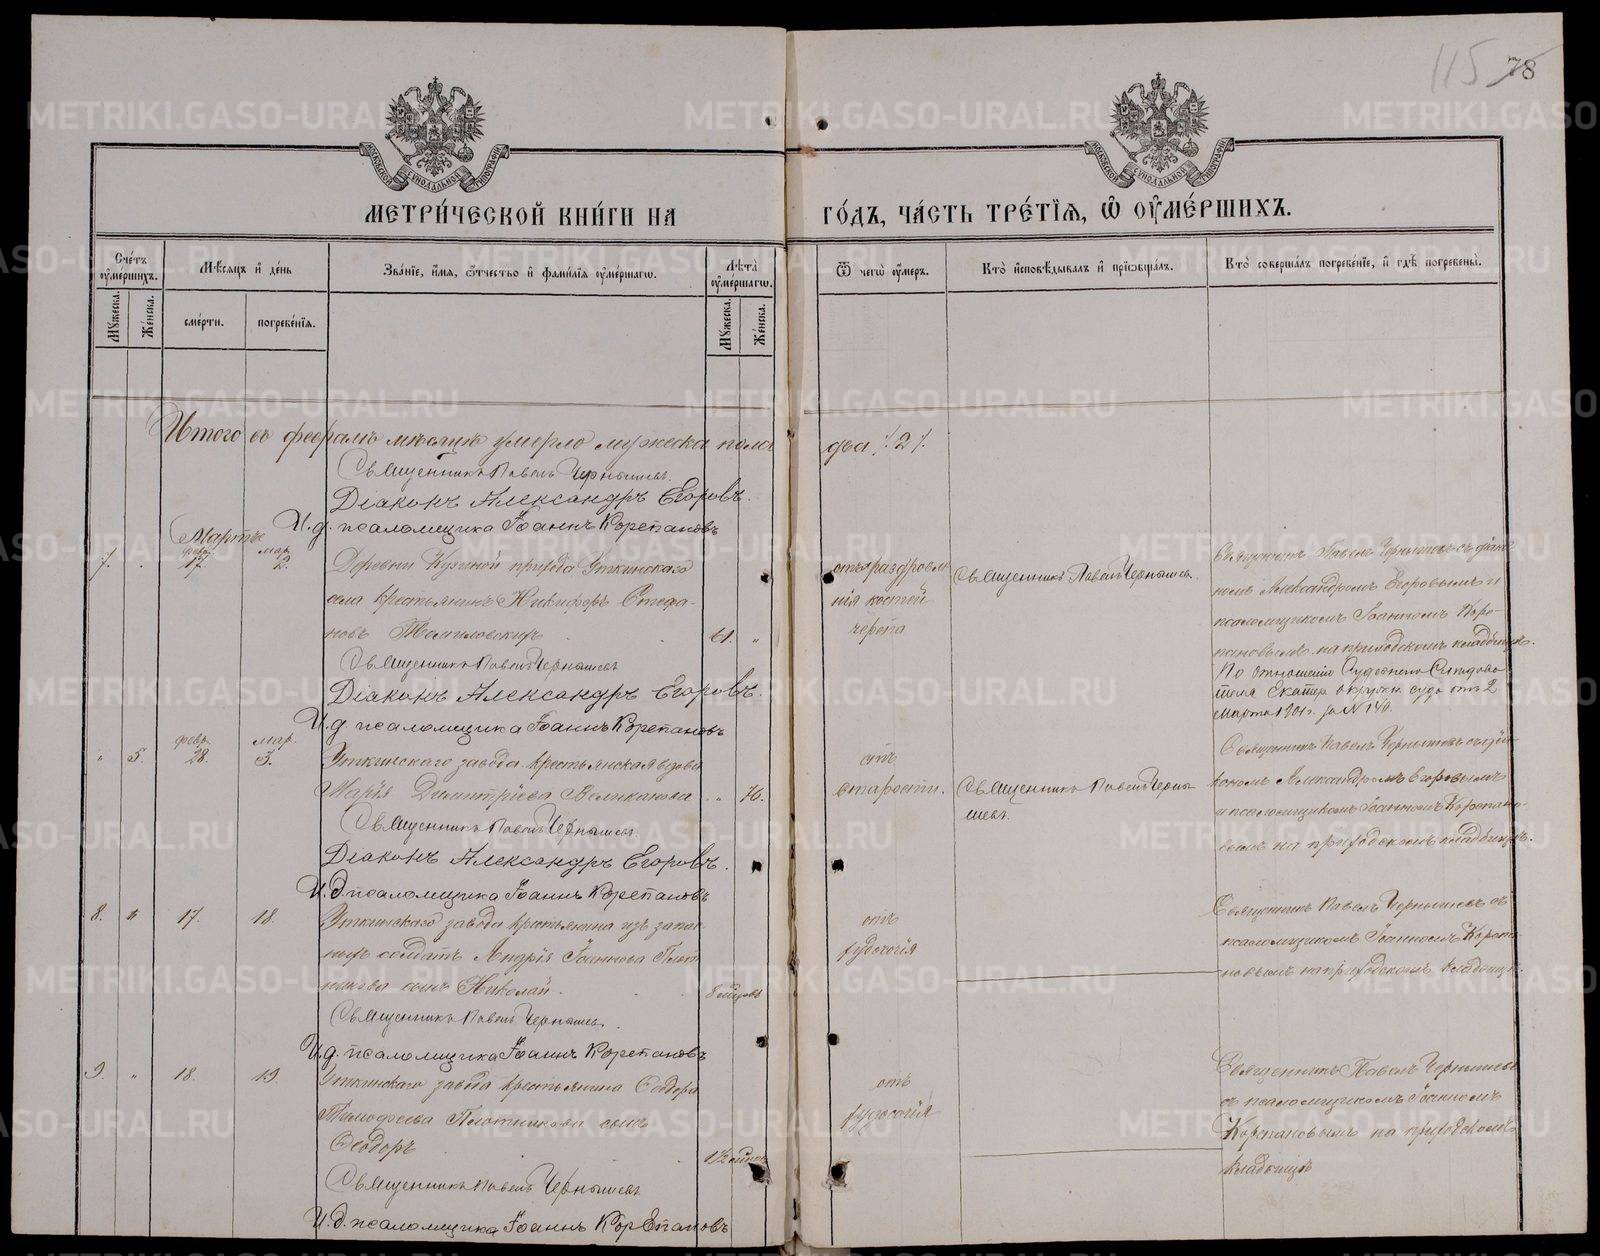 115 78
МОСКОВСКОЙ СѴНОДАЛЬНОЙ ТИПОГРАФІИ
МОСКОВСКОЙ СѴНОДАЛЬНОЙ ТИПОГРАФІИ
МЕТРИ́ЧЕСКОЙ КНИ́ГИ НА
ГО́ДЪ, ЧА́СТЬ ТРЕ́ТІЯ, Ѿ ОУМЕ́РШИХЪ.
Сче́тъ оумершихъ.
Мѣсяцъ и де́нь
Зва́ніе, и́мя, ѻтчество и фами́лія оумершагѡ.
Лѣта̀ оумершагѡ.
Ѿ чегѡ̀ оумеръ.
Кто̀ исповѣдывалъ и пріѡбща́лъ.
Кто̀ соверша́лъ погребе́ніе, и гдѣ̀ погребены̀.
Мꙋжеска.
Же́нска.
сме́рти.
погребе́нія.
Мꙋжеска.
Же́нска.
Итого въ февралѣ мѣсяцѣ умерло мужеска пола
два /2/.
Священникъ Павелъ Чернышевъ.
Діаконъ Александръ Егоровъ.
И. д. псаломщика Іоаннъ Корепановъ
Мартъ
7. февр. 17. мар. 2.
Деревни Кузиной прихода Уткинскаго
села крестьянинъ Никифоръ Стефа-
новъ Томиловскихъ 61. "
отъ раздробле
нія костей
черепа
Священникъ Павелъ Чернышевъ.
Священникъ Павелъ Чернышевъ съ діако
номъ Александромъ Егоровымъ и
псаломщикомъ Іоанномъ Коре-
пановымъ на приходскомъ кладбищѣ.
По отношенію Судебнаго Слѣдова
теля Екатер. окружн. суда отъ 2
Марта 1901 г. за № 140.
Священникъ Павелъ Чернышевъ
Діаконъ Александръ Егоровъ.
И. д. псаломщика Іоаннъ Корепановъ
" 5. февр. 28. мар. 3.
Уткинскаго завода крестьянская вдова
Марія Димитріева Великанова " 76.
отъ
старости.
Священникъ Павелъ Черны
шевъ.
Священникъ Павелъ Чернышевъ съ діа
кономъ Александромъ Егоровымъ
и псаломщикомъ Іоанномъ Корепано-
вымъ на приходскомъ кладбищѣ.
Священникъ Павелъ Чернышевъ.
Діаконъ Александръ Егоровъ.
И. д. псаломщика Іоаннъ Корепановъ
8. " 17. 18.
Уткинскаго завода крестьянина изъ запас
ныхъ солдатъ Андрія Іоаннова Плот
никова сынъ Николай. 8 мѣсяцовъ
отъ
Священникъ Павелъ Чернышевъ съ
псаломщикомъ Іоанномъ Корепа
новымъ на приходскомъ кладбищѣ
Священникъ Павелъ Чернышевъ.
И. д. псаломщика Іоаннъ Корепановъ
9. " 18. 19.
Уткинскаго завода крестьянина Ѳеодора
Тимофеева Плотникова сынъ
Ѳеодоръ
отъ
Священникъ Павелъ Чернышевъ
съ псаломщикомъ Іоанномъ
Корепановымъ на приходскомъ
кладбищѣ
Священникъ Павелъ Чернышевъ.
И. д. псаломщика Іоаннъ Корепановъ
METRIKI.GASO-URAL.RU